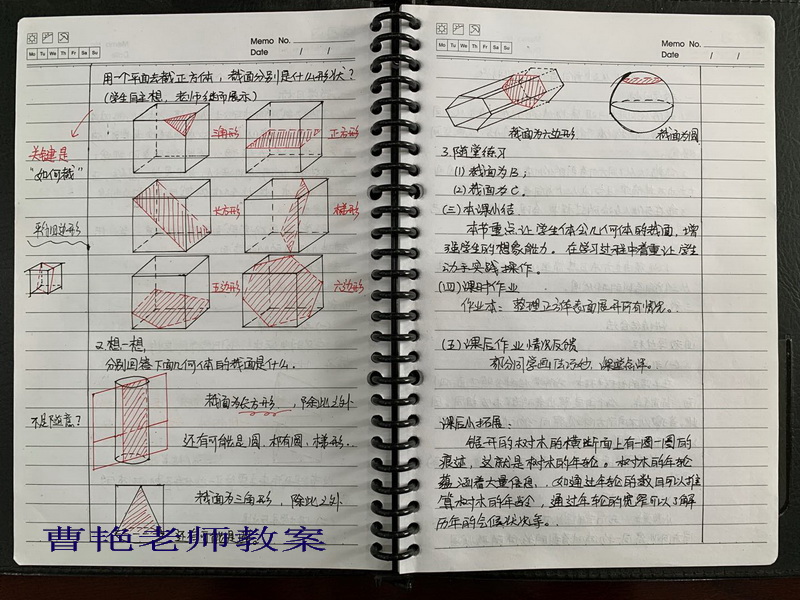 Memo No.
Mo Tu We Th Fr Sa Su
Date / /
用一个平面去截正方体，截面分别是什么形状？
(学生自主想，老师后展示)
三角形
正方形
关键是
"如何截"
长方形
梯形
平行四边形
五边形
六边形
2.想一想，
分别回答下面几何体的截面是什么.
截面为长方形，除此之外
不是随意？
还有可能是圆、椭圆、梯形..
截面为三角形，除此之外
曹艳老师教案
Memo No.
Mo Tu We Th Fr Sa Su
Date / /
截面为六边形
截面为圆
3.随堂练习
(1)截面为B；
(2)截面为C.
(三)本课小结
本节重点让学生体会几何体的截面，增
强学生的想象能力。在学习过程中着重让学生
动手实践操作。
(四)课时作业
作业本：整理正方体表面展开所有情况..
(五)课后作业情况反馈
部分同学画法巧妙，课堂点评。
课后小拓展：
锯开的树木的横断面上有一圈一圈的
痕迹，这就是树木的年轮。树木的年轮
蕴涵着大量信息，如通过年轮的数目可以推
算树木的年龄，通过年轮的宽窄可以了解
历年的气候状况等。